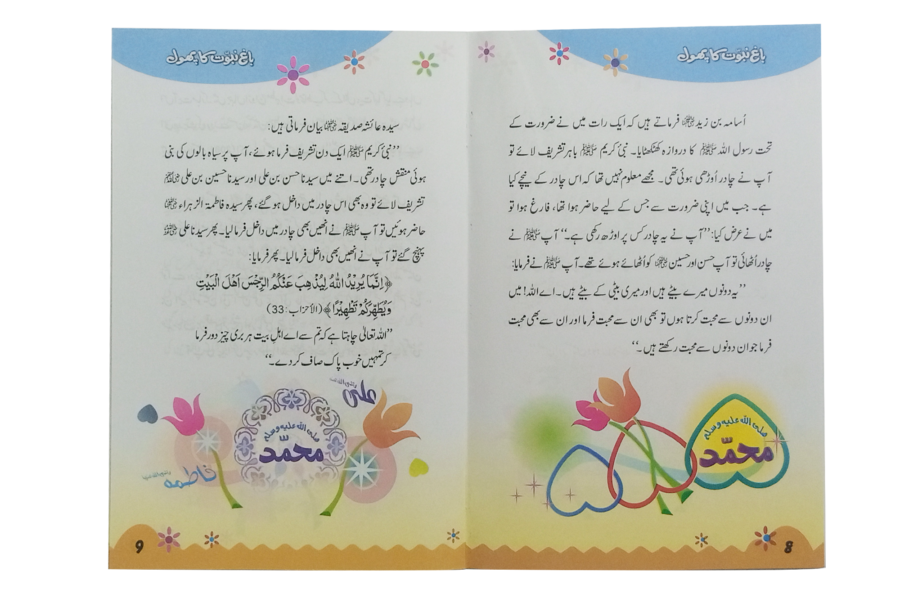 باغِ نبوّت کا پھول
اُسامہ بن زید ؓ فرماتے ہیں کہ ایک رات میں نے ضرورت کے
تحت رسول اللہ ﷺ کا دروازہ کھٹکھٹایا۔ نبیٔ کریم ﷺ باہر تشریف لائے تو
آپ نے چادر اُوڑھی ہوئی تھی۔ مجھے معلوم نہیں تھا کہ اس چادر کے نیچے کیا
ہے۔ جب میں اپنی ضرورت سے جس کے لیے حاضر ہوا تھا، فارغ ہوا تو
میں نے عرض کیا: ’’آپ نے یہ چادر کس پر اوڑھ رکھی ہے۔‘‘ آپ ﷺ نے
چادر اُٹھائی تو آپ حسن اور حسین ؓ کو اُٹھائے ہوئے تھے۔ آپ ﷺ نے فرمایا:
’’یہ دونوں میرے بیٹے ہیں اور میری بیٹی کے بیٹے ہیں۔ اے اللہ! میں
ان دونوں سے محبت کرتا ہوں تو بھی ان سے محبت فرما اور ان سے بھی محبت
فرما جو ان دونوں سے محبت رکھتے ہیں۔‘‘
صلی اللہ علیہ وسلم
محمّد
8
باغِ نبوّت کا پھول
سیدہ عائشہ صدیقہ ؓ بیان فرماتی ہیں:
’’نبیٔ کریم ﷺ ایک دن تشریف فرما ہوئے، آپ پر سیاہ بالوں کی بنی
ہوئی منقش چادر تھی۔ اتنے میں سیدنا حسن بن علی اور سیدنا حسین بن علی ؓ
تشریف لائے تو وہ بھی اس چادر میں داخل ہو گئے، پھر سیدہ فاطمۃ الزہراء ؓ
حاضر ہوئیں تو آپ ﷺ نے انھیں بھی چادر میں داخل فرما لیا۔ پھر سیدنا علی ؓ
پہنچ گئے تو آپ نے انھیں بھی داخل فرما لیا۔ پھر فرمایا:
﴿اِنَّمَا يُرِيْدُ اللّٰهُ لِيُذْهِبَ عَنْكُمُ الرِّجْسَ اَهْلَ الْبَيْتِ
وَيُطَهِّرَكُمْ تَطْهِيْرًا﴾ (الأحزاب: 33)
’’اللہ تعالیٰ چاہتا ہے کہ تم سے اے اہلِ بیت ہر بری چیز دور فرما
کر تمہیں خوب پاک صاف کر دے۔‘‘
علی
صلی اللہ علیہ وسلم
محمّد
فاطمہ
9